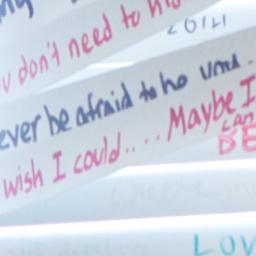 don't need to
2014
ever be afraid to be
wish I could.... Maybe I
can
BE
LOV